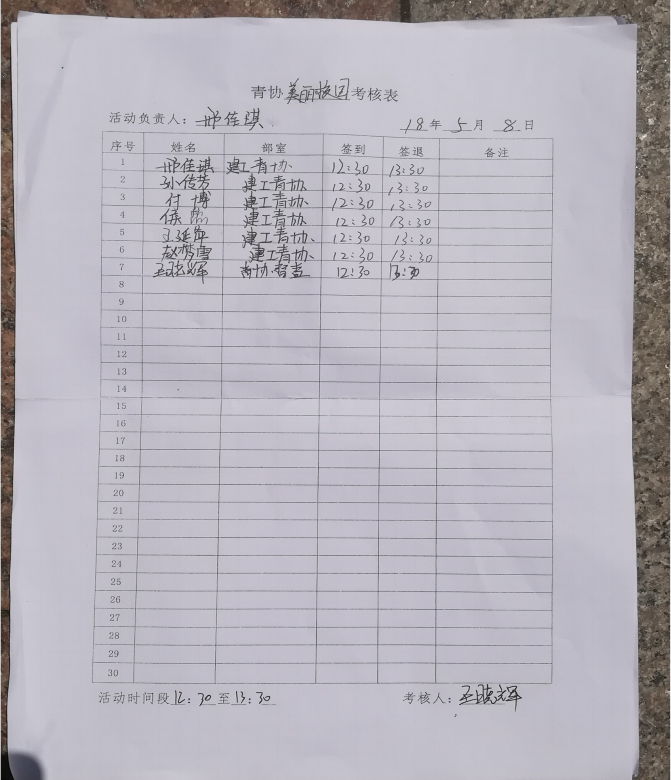 青协美丽校园考核表
活动负责人：邢佳琪 18年5月8日
序号 姓名 部室 签到 签退 备注
1 邢佳琪 建工青协 12:30 13:30
2 孙传芳 建工青协 12:30 13:30
3 付博 建工青协 12:30 13:30
4 侯 建工青协 12:30 13:30
5 王延 建工青协 12:30 13:30
6 赵梦雪 建工青协 12:30 13:30
7 王晓辉 青协督查 12:30 13:30
8
9
10
11
12
13
14
15
16
17
18
19
20
21
22
23
24
25
26
27
28
29
30
活动时间段12:30至13:30 考核人：王晓辉